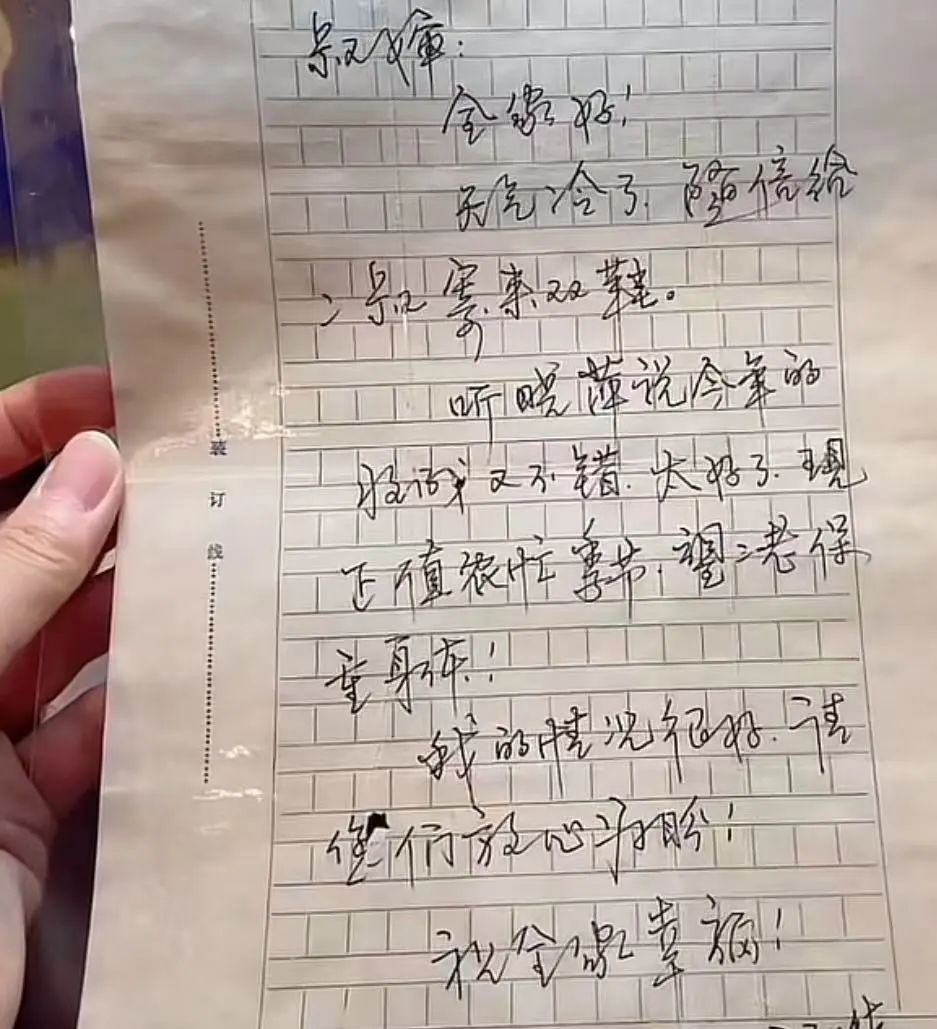 叔婶：
全家好！
天气冷了．随信给
二叔寄来双鞋。
听晓萍说今年的
收成又不错．太好了．现
正值农忙季节，望二老保
重身体！
我的情况很好．请
您们放心勿盼！
祝全家幸福！
装
订
线